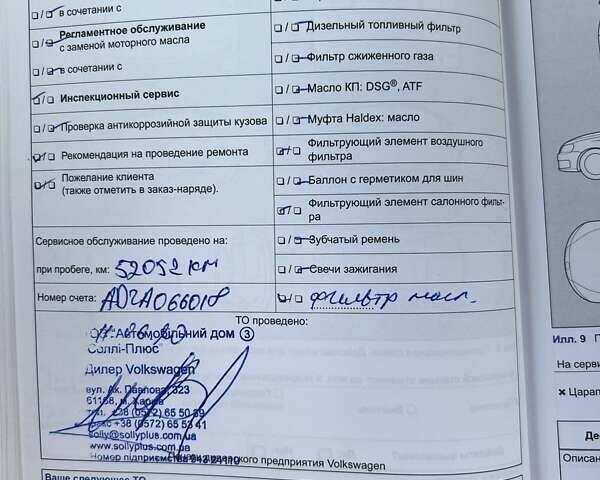 в сочетании с
Регламентное обслуживание
с заменой моторного масла
в сочетании с
Инспекционный сервис
Проверка антикоррозийной защиты кузова
Рекомендация на проведение ремонта
Пожелание клиента
(также отметить в заказ-наряде).
Дизельный топливный фильтр
Фильтр сжиженного газа
Масло КП: DSG®, ATF
Муфта Haldex: масло
Фильтрующий элемент воздушного
фильтра
Баллон с герметиком для шин
Фильтрующий элемент салонного фильт-
ра
Зубчатый ремень
Свечи зажигания
фильтр масл.
Сервисное обслуживание проведено на:
при пробеге, км: 52052 км
Номер счета:
ТО проведено:
"Автомобільний дом 3
Соллі-Плюс"
Дилер Volkswagen
вул. Ак. Павлова, 323
м. Харків
+38 (0572) 65 50 39
+38 (0572) 65 53 41
solly@sollyplus.com.ua
www.sollyplus.com.ua
Номер підприємства
предприятия Volkswagen
Ваше следующее ТО
Илл. 9
На серви
× Царап
Описан